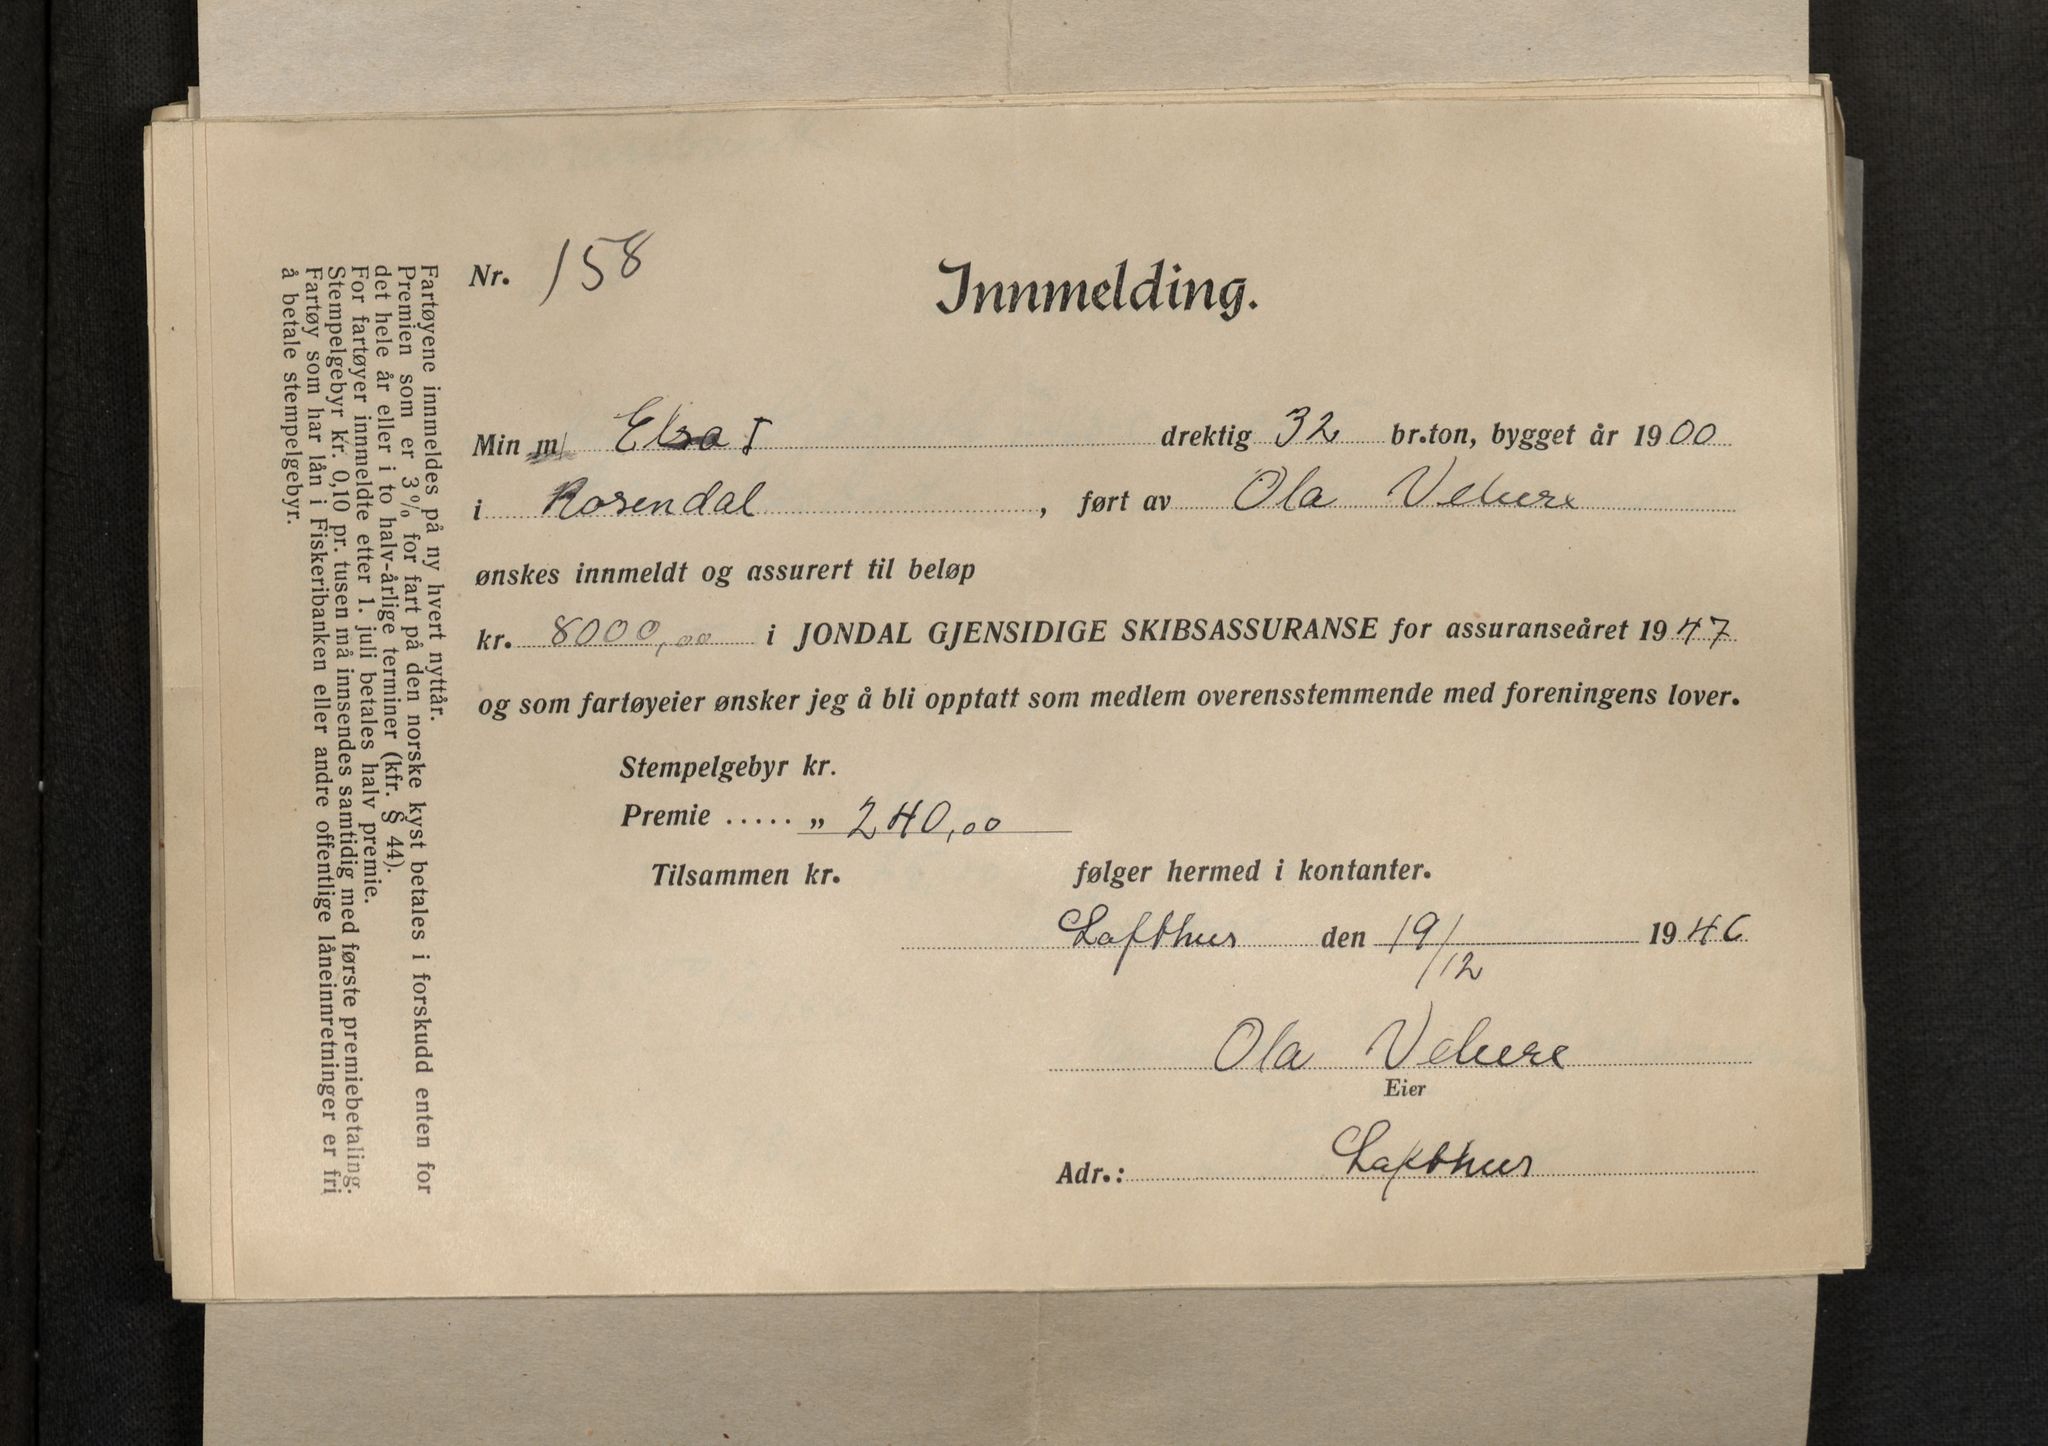 Nr. 158
Innmelding.
Min m/ Elsa I drektig 32 br.ton, bygget år 1900
i Rosendal, ført av Ola Velure
ønskes innmeldt og assurert til beløp
kr. 8000,00 i JONDAL GJENSIDIGE SKIBSASSURANSE for assuranseåret 1947
og som fartøyeier ønsker jeg å bli opptatt som medlem overensstemmende med foreningens lover.
Stempelgebyr kr.
Premie ..... „ 240,00
Tilsammen kr. følger hermed i kontanter.
Lofthus den 19/12 1946
Ola Velure
Eier
Adr.: Lofthus
Fartøyene innmeldes på ny hvert nyttår.
Premien som er 3% for fart på den norske kyst betales i forskudd enten for
det hele år eller i to halv-årlige terminer (kfr. § 44).
For fartøyer innmeldte etter 1. juli betales halv premie.
Stempelgebyr kr. 0,10 pr. tusen må innsendes samtidig med første premiebetaling.
Fartøy som har lån i Fiskeribanken eller andre offentlige låneinnretninger er fri
å betale stempelgebyr.